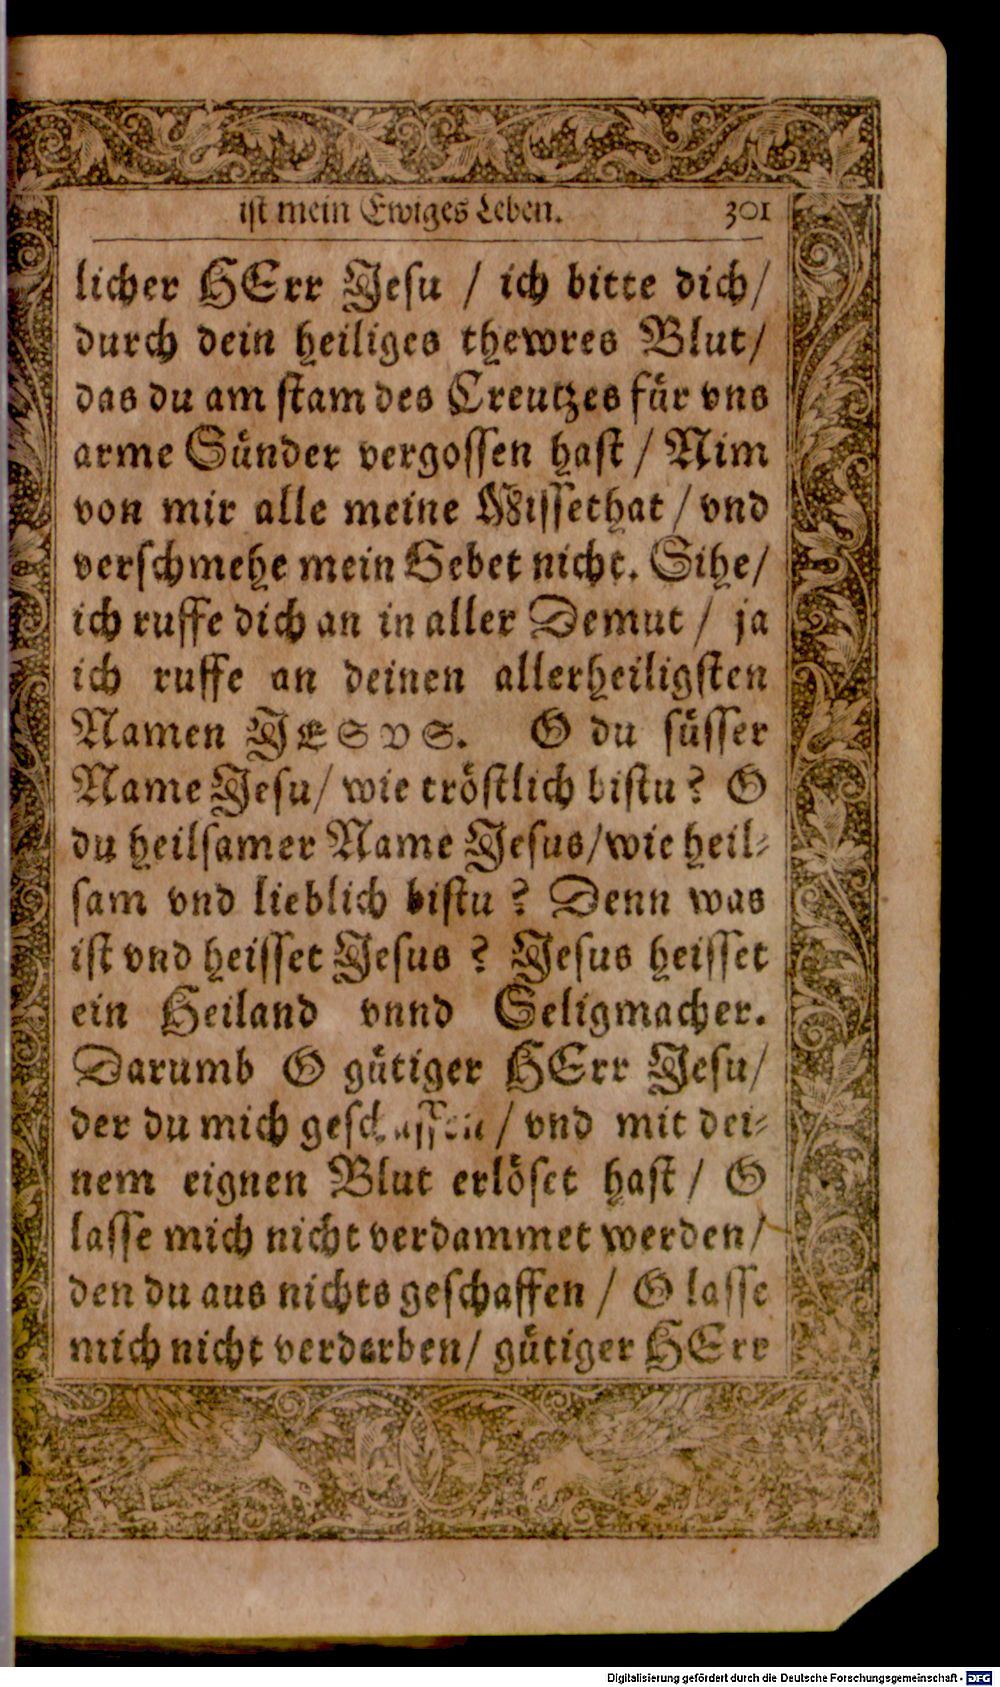 ist mein Ewiges Leben. 301
licher HErr Jesu / ich bitte dich/
durch dein heiliges thewres Blut/
das du am stam des Creutzes für vns
arme Sünder vergossen hast / Nim
von mir alle meine Missethat / vnd
verschmehe mein Gebet nicht. Sihe/
ich ruffe dich an in aller Demut / ja
ich ruffe an deinen allerheiligsten
Namen JESVS. O du süsser
Name Jesu/ wie tröstlich bistu? O
du heilsamer Name Jesus/wie heil-
sam vnd lieblich bistu ? Denn was
ist vnd heisset Jesus ? Jesus heisset
ein Heiland vnnd Seligmacher.
Darumb O gütiger HErr Jesu/
der du mich geschaffen / vnd mit dei-
nem eignen Blut erlöset hast / O
lasse mich nicht verdammet werden/
den du aus nichts geschaffen / O lasse
mich nicht verderben/ gütiger HErr
Digitalisierung gefördert durch die Deutsche Forschungsgemeinschaft - DFG